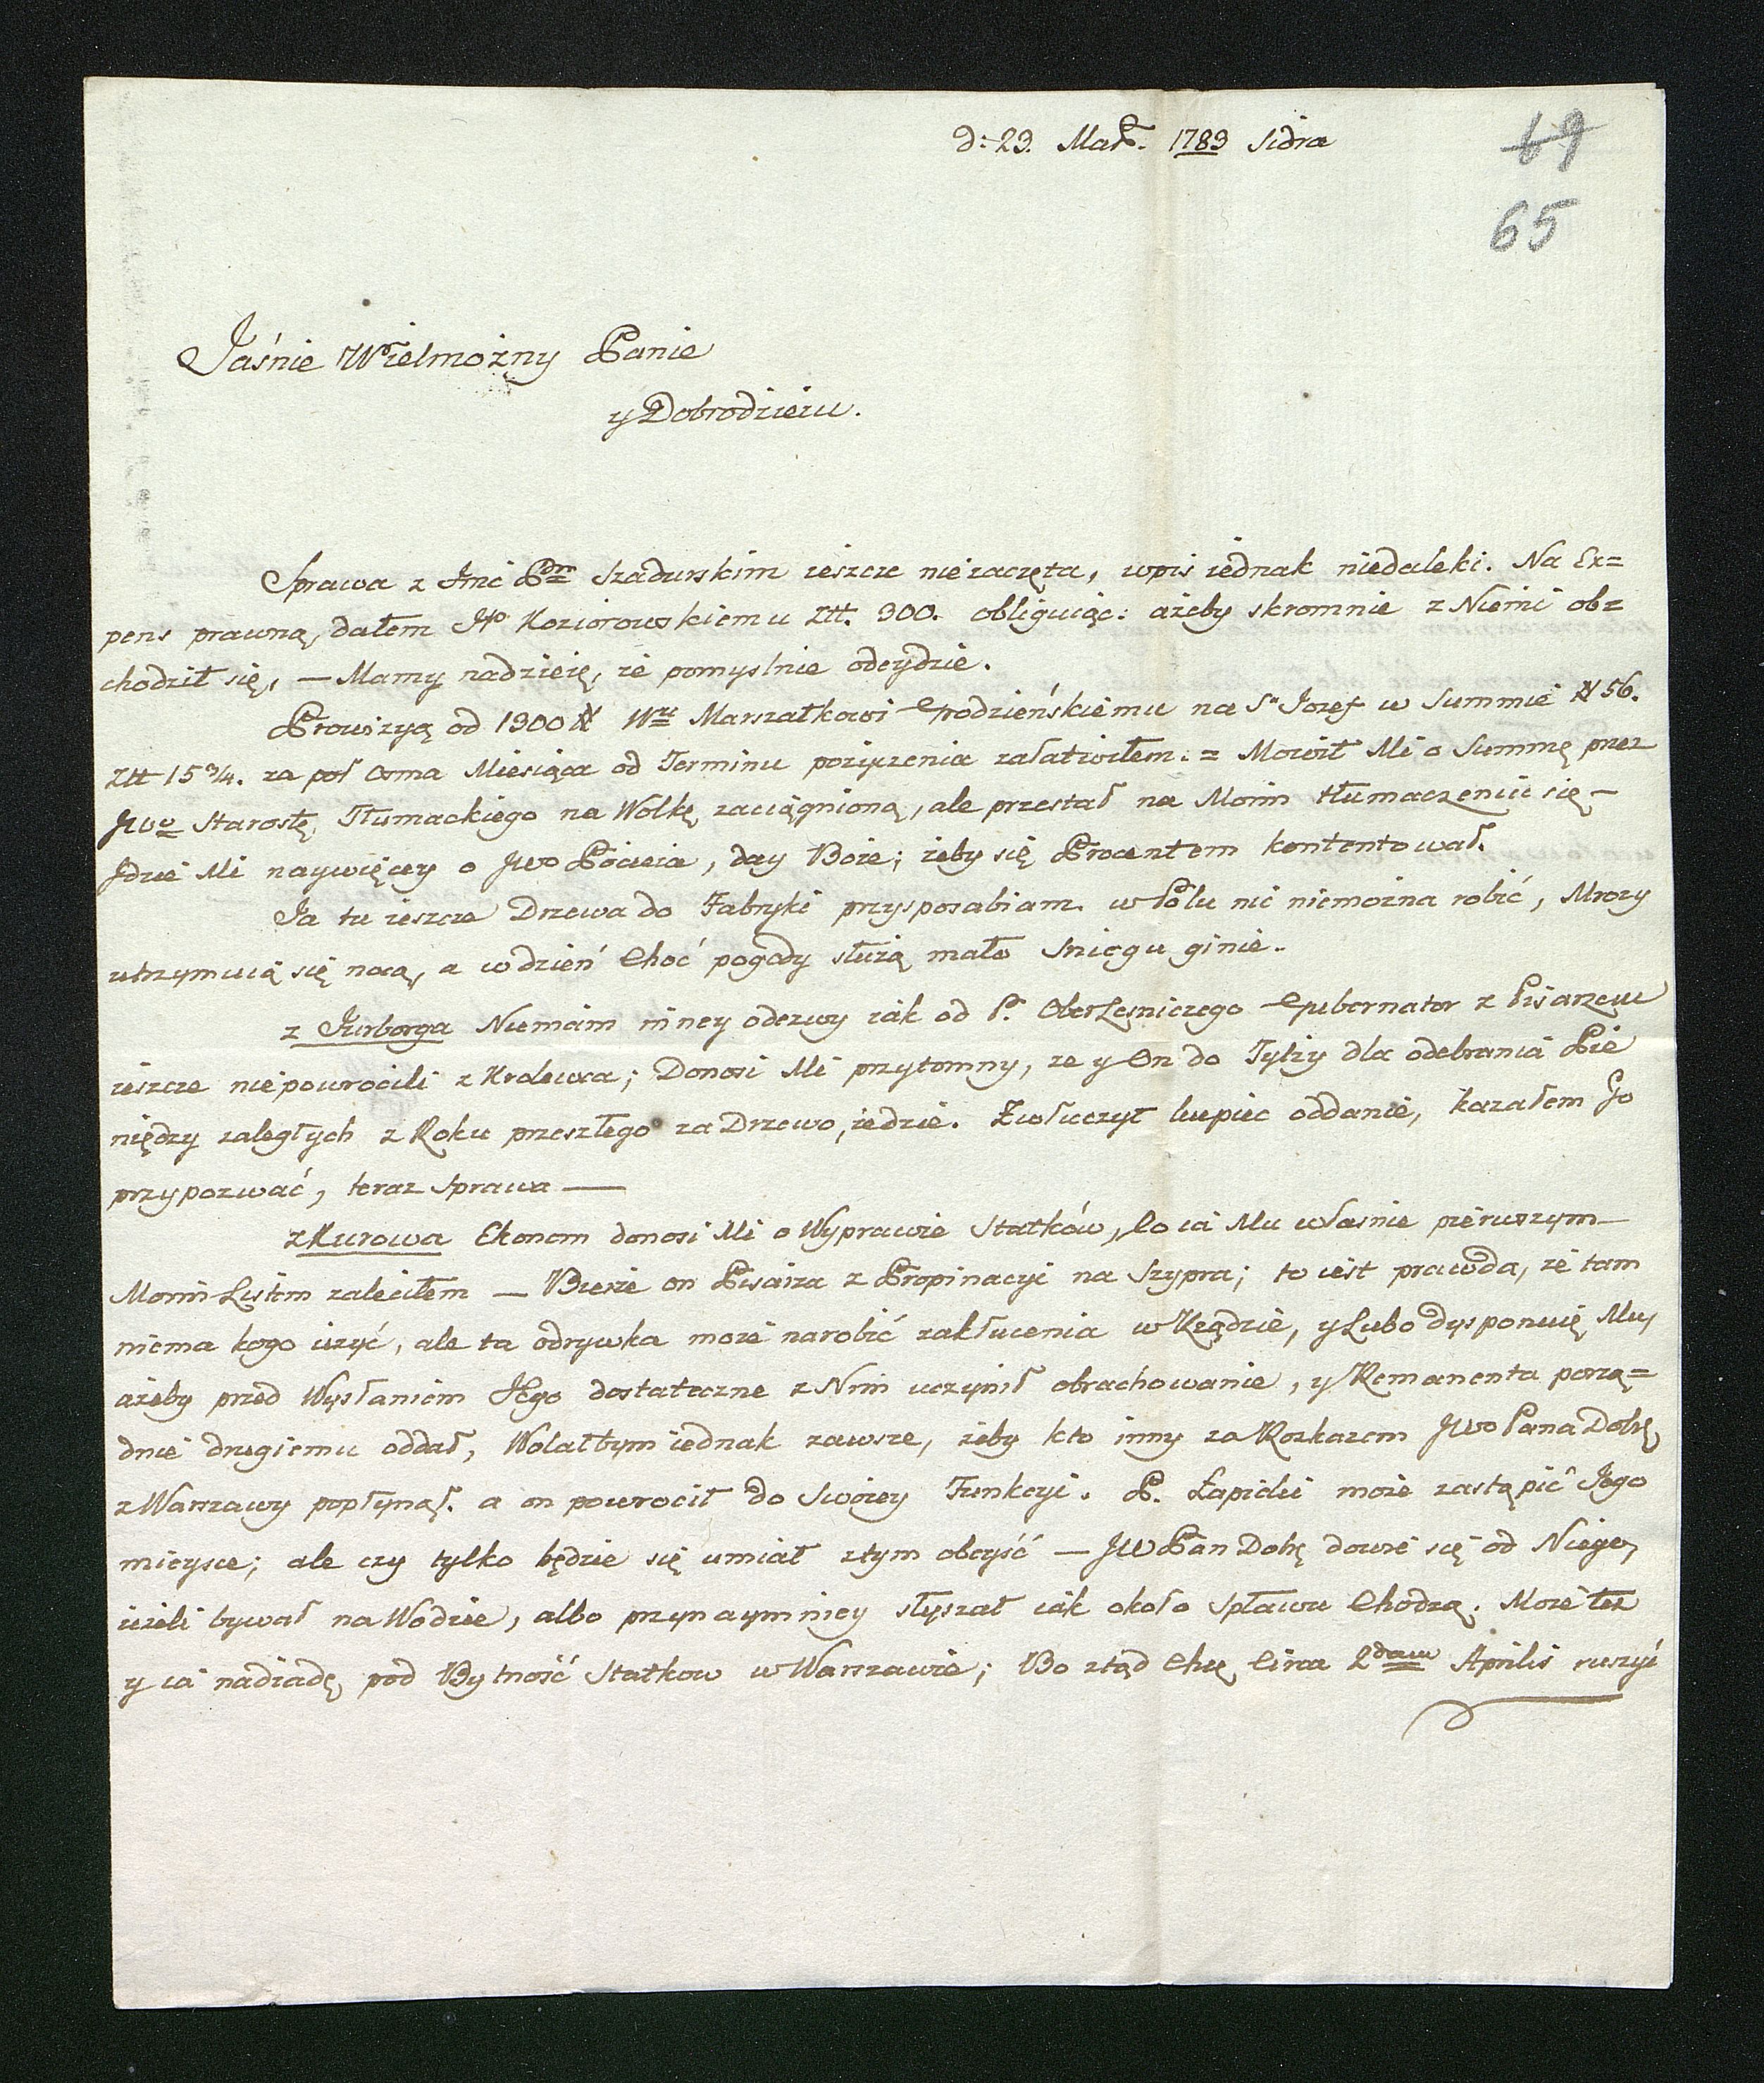 d: 23. Mar. 1783 Sidra
69
65
Jaśnie Wielmożny Panie
y Dobrodzieiu.
Sprawa z Jmć Pan Szadurskim ieszcze niezaczęta, wpis iednak niedaleki. Na Ex=
pens prawną, dałem Jko Koziorowskiemu Ztt. 300. obliguiąc: ażeby skromnie z Niemi ob=
chodził się, — Mamy nadzieię, że pomyslnie odeydzie.
Prowizyą od 1300 # Marszałkowi Grodzieńskiemu na Sn Jozef w Summie # 56.
Ztt 15 3/4. za poł osma Miesiąca od Terminu pożyczenia załatwiłem. = Mowił Mi o Summę przez
JWo Starostę Tłumackiego na Wolkę zaciągnioną, ale przestał na Moim tłumaczeniu się —
Jdzie Mi naywięcey o JWo Pocieia, day Boże; żeby się Procentem kontentował.
Ja tu ieszcze Drzewa do Fabryki przysposabiam. w Polu nic niemożna robić, Mrozy
utrzymuią się nocą, a w dzień Choć pogody służą mało Sniegu ginie..
z Jurborga Niemam inney odezwy iak od P. OberLeśniczego Gubernator z Pisarzem
ieszcze niepowrocili z Krolewca; Donosi Mi przytomny, ze y On do Tylży dla odebrania Pie
niędzy zaległych z Roku przeszłego za Drzewo, iedzie. Zwłuczył kupiec oddanie, kazałem Go
przypozwać, teraz Sprawa —
z Kurowa Ekonom donosi Mi o Wyprawie Statków, Co ia Mu własnie pierwszym —
Moim Listem zaleciłem — Bierze on Pisarza z Propinacyi na Szypra; to iest prawda, że tam
niema kogo użyć, ale ta odrywka może narobić zakłucenia w Rządzie, y Lubo dysponuię Mu,
ażeby przed Wysłaniem JEgo dostateczne z Nim uczynił obrachowanie, y Remanenta porzą=
dnie drugiemu oddał, Wolałbym iednak zawsze, żeby kto inny za Rozkazem JWo Pana Dobę
z Warszawy popłynął. a on powrocił do Swoiey Funkcyi. P. Łapicki może zastąpić Jego
mieysce; ale czy tylko będzie się umiał z tym obeyść — JW Pan Dobę dowie się od Niego,
ieżeli bywał na Wodzie, albo przynaymniey słyszał iak około Spławu Chodzą. Może też
y ia nadiadę pod Bytność Statkow w Warszawie; Bo ztąd Chcę Circa 2dam Aprilis ruszyć